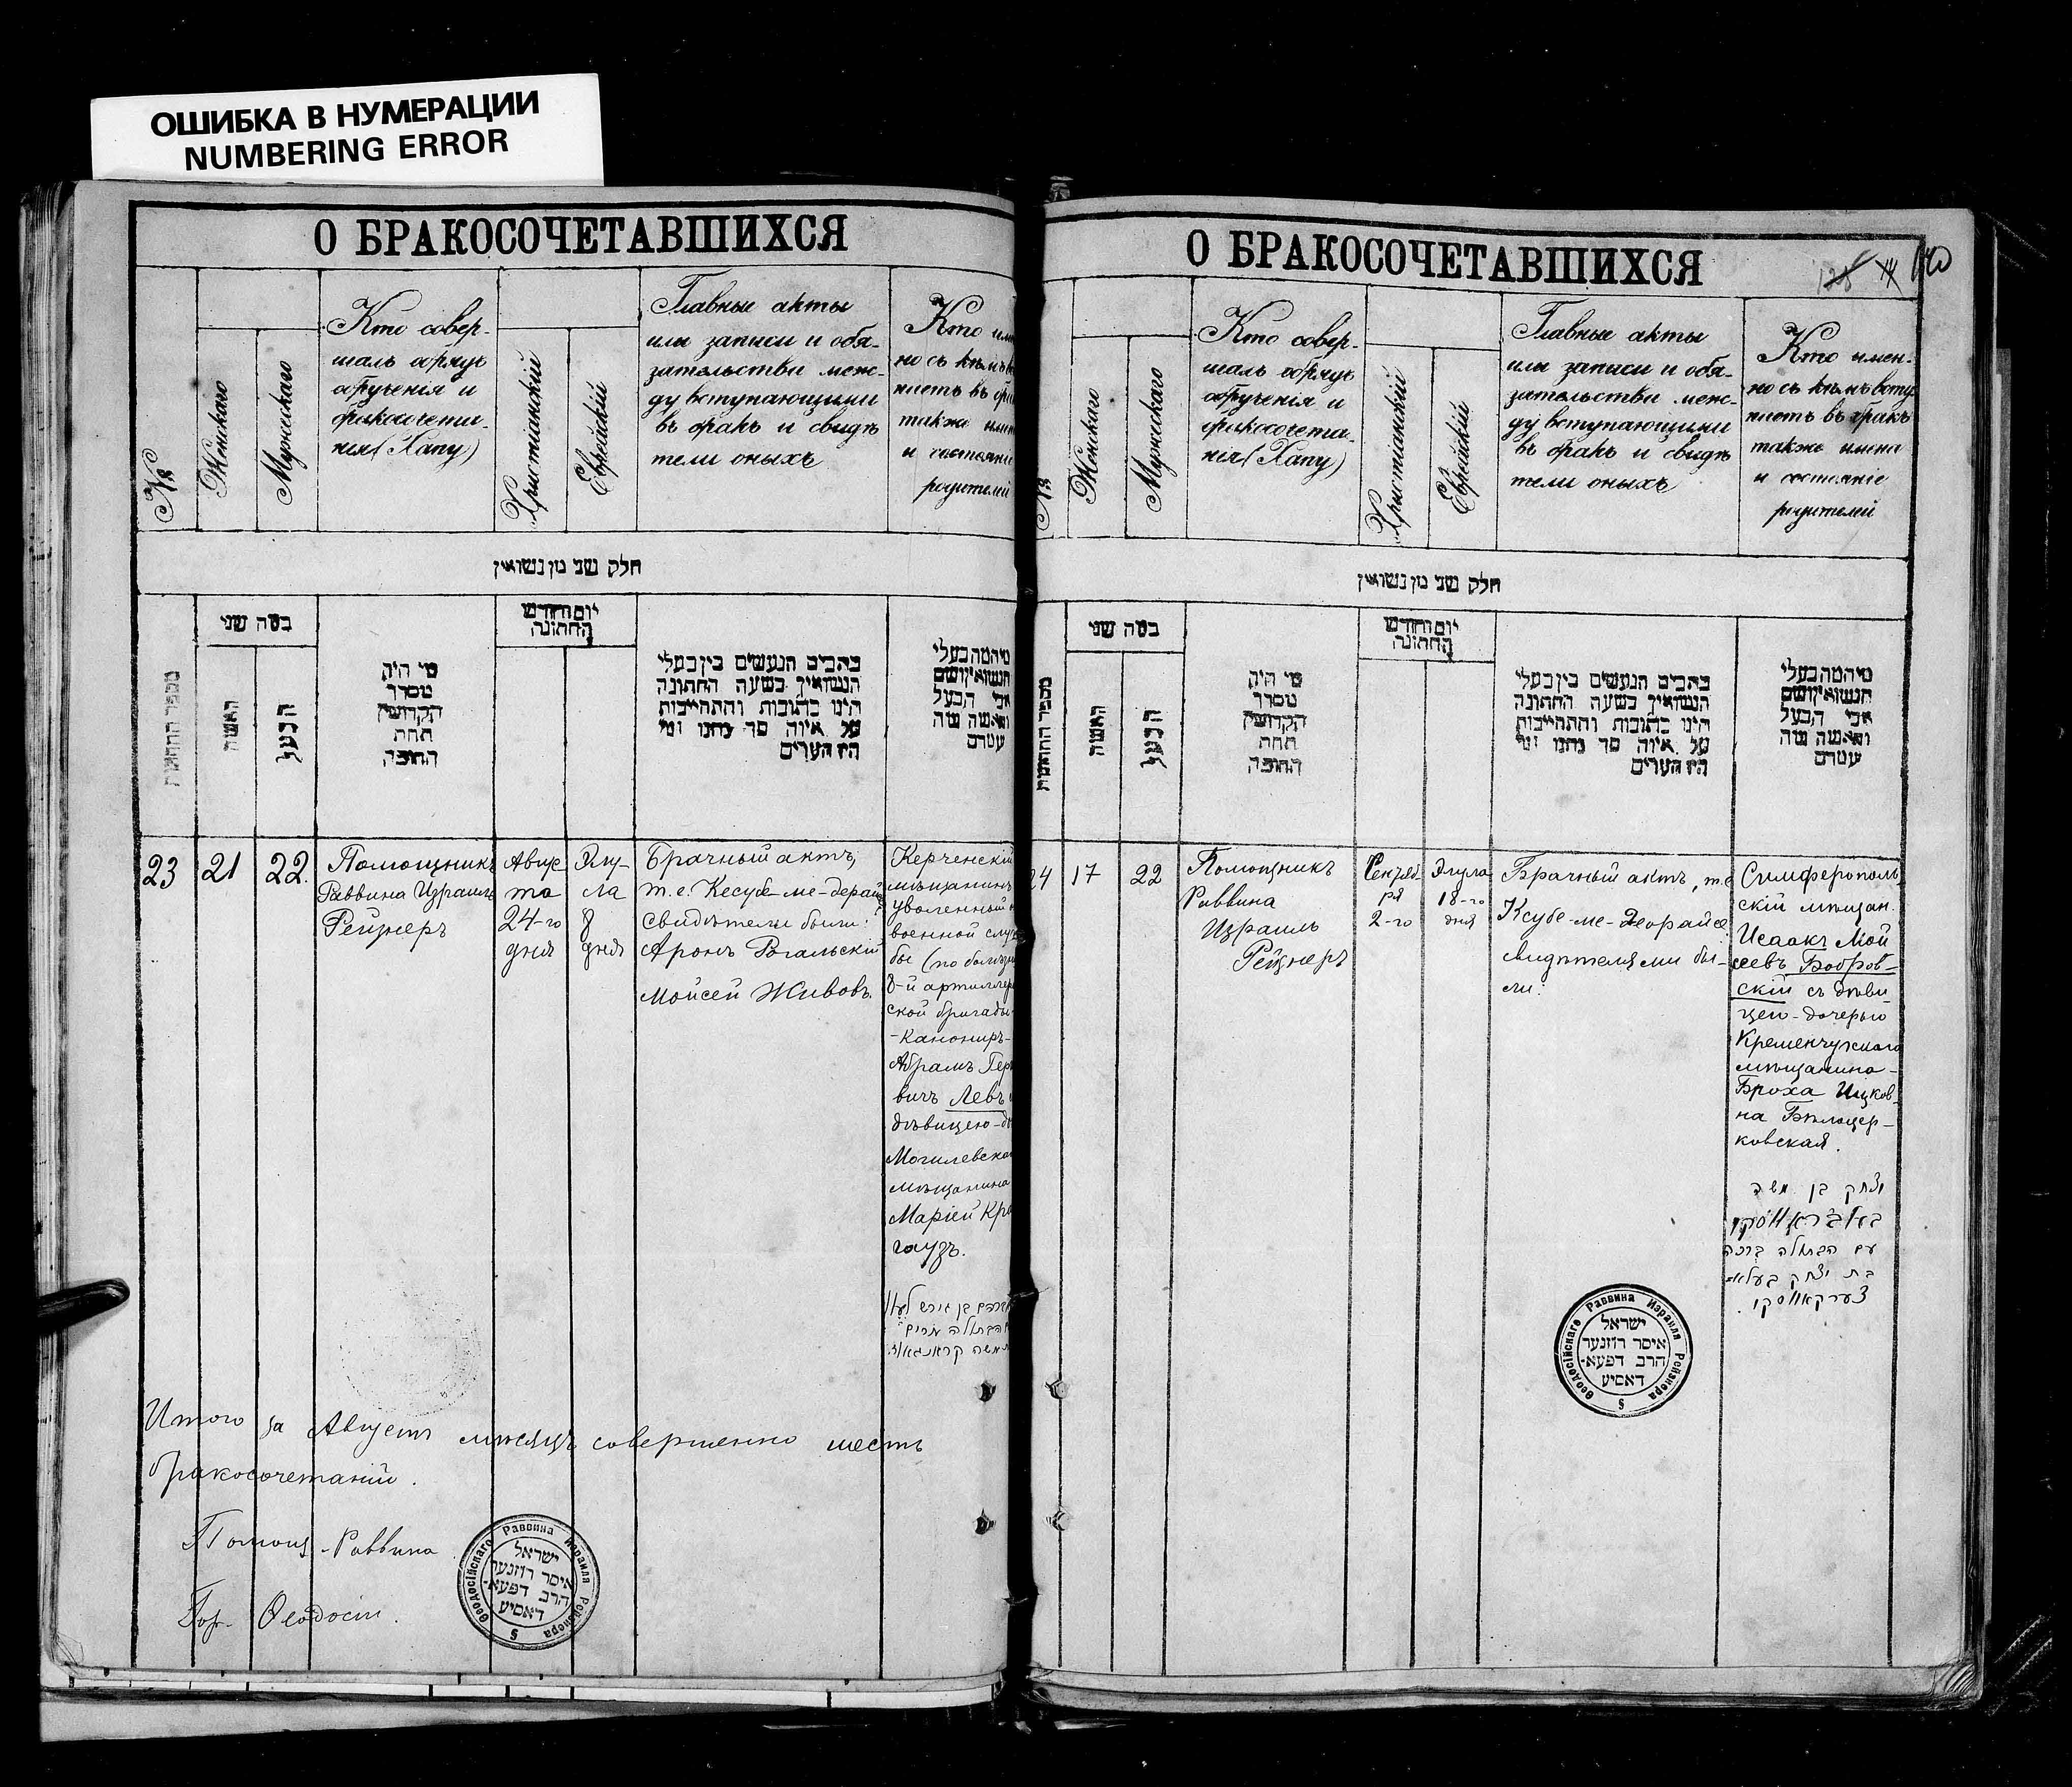 ОШИБКА В НУМЕРАЦИИ
NUMBERING ERROR
О БРАКОСОЧЕТАВШИХСЯ
№
Женскаго
Мужескаго
Кто совер-
шалъ обрядъ
обрученія и
бракосочета-
нія (Хапу)
Христіанскій
Еврейскій
Главные акты
или записи и обя-
зательства меж-
ду вступающими
въ бракъ и свидѣ
тели оныхъ
Кто
но съ кѣмъ
также
и состояніе
родителей
חלק שני מן נשואין
מספר החתונות
כמה שני
האשה
הבעל
מי היה
מסדר
הקדושין
תחת
החופה
יום וחודש
החתונה
כתבים הנעשים בין בעלי
הנשואין בשעת החתונה
היינו כתובות והתחייבות
על איזה סך נתנו ומי
היו העדים
מי המה בעלי
הנשואין ושם
אבי הבעל
והאשה ומה
23
21
22.
Помощникъ
Раввина Израиль
Рейзнеръ
Авгус
та
24-го
дня
Элу-
ла
8
дня
Брачный актъ,
т.е. Кесубе-ме-дерай
Свидѣтели были:
Аронъ
Мойсей Живовъ.
Керченскій
мѣщанинъ
уволенный
военной
бы (по
8-й
ской бригады
-канониръ-
Абрамъ
вичъ Левъ
дѣвицею-
мѣщанина
Маріей
гаузъ.
Итого за Августъ мѣсяцъ совершенно шесть
бракосочетаній.
Помощ. Раввина
Гор. Ѳеодосіи.
Ѳеодосійскаго Раввина Израиля Рейзнера
ישראל
איסר רוזנער
הרב דפעא-
דאסיע
О БРАКОСОЧЕТАВШИХСЯ
№
Женскаго
Мужескаго
Кто совер-
шалъ обрядъ
обрученія и
бракосочета-
нія (Хапу)
Христіанскій
Еврейскій
Главные акты
или записи и обя-
зательства меж-
ду вступающими
въ бракъ и свидѣ
тели оныхъ
Кто имен-
но съ кѣмъ всту
паетъ въ бракъ
также имена
и состояніе
родителей
חלק שני מן נשואין
מספר החתונות
כמה שני
האשה
הבעל
מי היה
מסדר
הקדושין
תחת
החופה
יום וחודש
החתונה
כתבים הנעשים בין בעלי
הנשואין בשעת החתונה
היינו כתובות והתחייבות
על איזה סך נתנו ומי
היו העדים
מי המה בעלי
הנשואין ושם
אבי הבעל
והאשה ומה
24
17
22
Помощникъ
Раввина
Израиль
Рейзнеръ
Сентяб-
ря
2-го
Элула
18-го
дня
Брачный актъ, т.е
Ксубе-ме-Деорайсе
свидѣтелями бы-
ли:
Симферополь
скій мѣщан.
Исаакъ Мой
сеевъ Бобров-
скій съ дѣви-
цей-дочерью
Кременчугскаго
мѣщанина-
Броха Ицков-
на Бѣлоцер-
ковская.
יצחק בן משה
באבראווסקי
עם הבתולה ברכה
בת יצחק בעלא-
צערקאווסקי.
Ѳеодосійскаго Раввина Израиля Рейзнера
ישראל
איסר רוזנער
הרב דפעא-
דאסיע